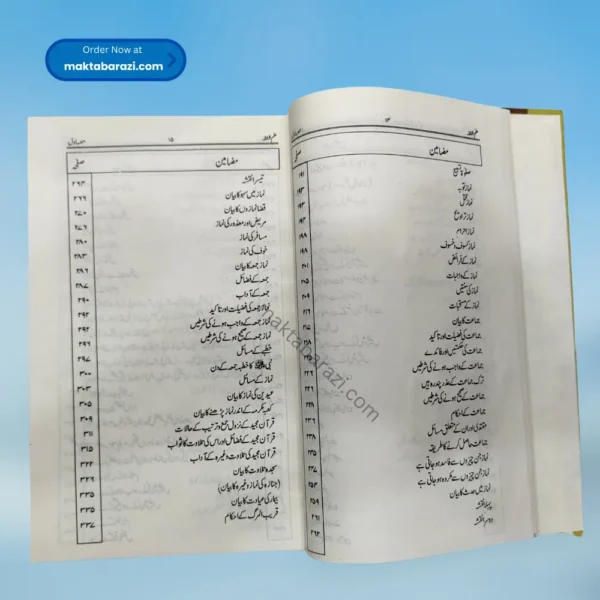 Order Now at
maktabarazi.com
علم الفقہ ۱۴ حصہ اول
مضامین صفحہ
صلوٰۃ تسبیح ۱۹۱
نماز توبہ ۱۹۳
نماز قتل ۱۹۳
نماز تراویح ۱۹۳
نماز احرام ۱۹۹
نماز کسوف و خسوف ۱۹۹
نماز کے فرائض ۲۰۱
نماز کے واجبات ۲۰۵
نماز کی سنتیں ۲۰۹
نماز کے مستحبات
جماعت کا بیان
جماعت کی فضیلت اور تاکید
جماعت کی حکمتیں اور فائدے
جماعت کے واجب ہونے کی شرطیں
ترک جماعت کے عذر پندرہ ہیں
جماعت کے صحیح ہونے کی شرطیں
جماعت کے احکام
مقتدی اور امام کے متعلق مسائل
جماعت حاصل کرنے کا طریقہ
نماز جن چیزوں سے فاسد ہو جاتی ہے
نماز جن چیزوں سے مکروہ ہو جاتی ہے
نماز میں حدث کا بیان ۲۵۹
پہلا نقشہ ۲۶۱
دوسرا نقشہ ۲۶۲
علم الفقہ ۱۵ حصہ اول
مضامین صفحہ
تیسرا نقشہ ۲۶۳
نماز میں سہو کا بیان ۲۶۶
قضا نمازوں کا بیان ۲۷۰
مریض اور معذور کی نماز ۲۷۶
مسافر کی نماز ۲۸۰
خوف کی نماز ۲۸۳
نماز جمعہ کا بیان ۲۸۶
جمعہ کے فضائل ۲۸۷
جمعہ کے آداب ۲۹۰
نماز جمعہ کی فضیلت اور تاکید ۲۹۲
نماز جمعہ کے واجب ہونے کی شرطیں ۲۹۴
نماز جمعہ کے صحیح ہونے کی شرطیں ۲۹۶
خطبے کے مسائل ۲۹۷
نبی ﷺ کا خطبہ جمعہ کے دن ۳۰۰
نماز کے مسائل ۳۰۳
عیدین کی نماز کا بیان ۳۰۵
کعبہ مکرمہ کے اندر نماز پڑھنے کا بیان ۳۰۹
قرآن مجید کے نزول جمع و ترتیب کے حالات ۳۱۱
قرآن مجید کے فضائل اور اس کی تلاوت کا ثواب ۳۱۵
قرآن مجید کی تلاوت وغیرہ کے آداب ۳۲۲
سجدہ تلاوت کا بیان ۳۳۲
(جنازہ کی نماز وغیرہ کا بیان) ۳۳۵
بیمار کی عیادت کا بیان ۳۳۵
قریب المرگ کے احکام ۳۳۷
maktabarazi.com